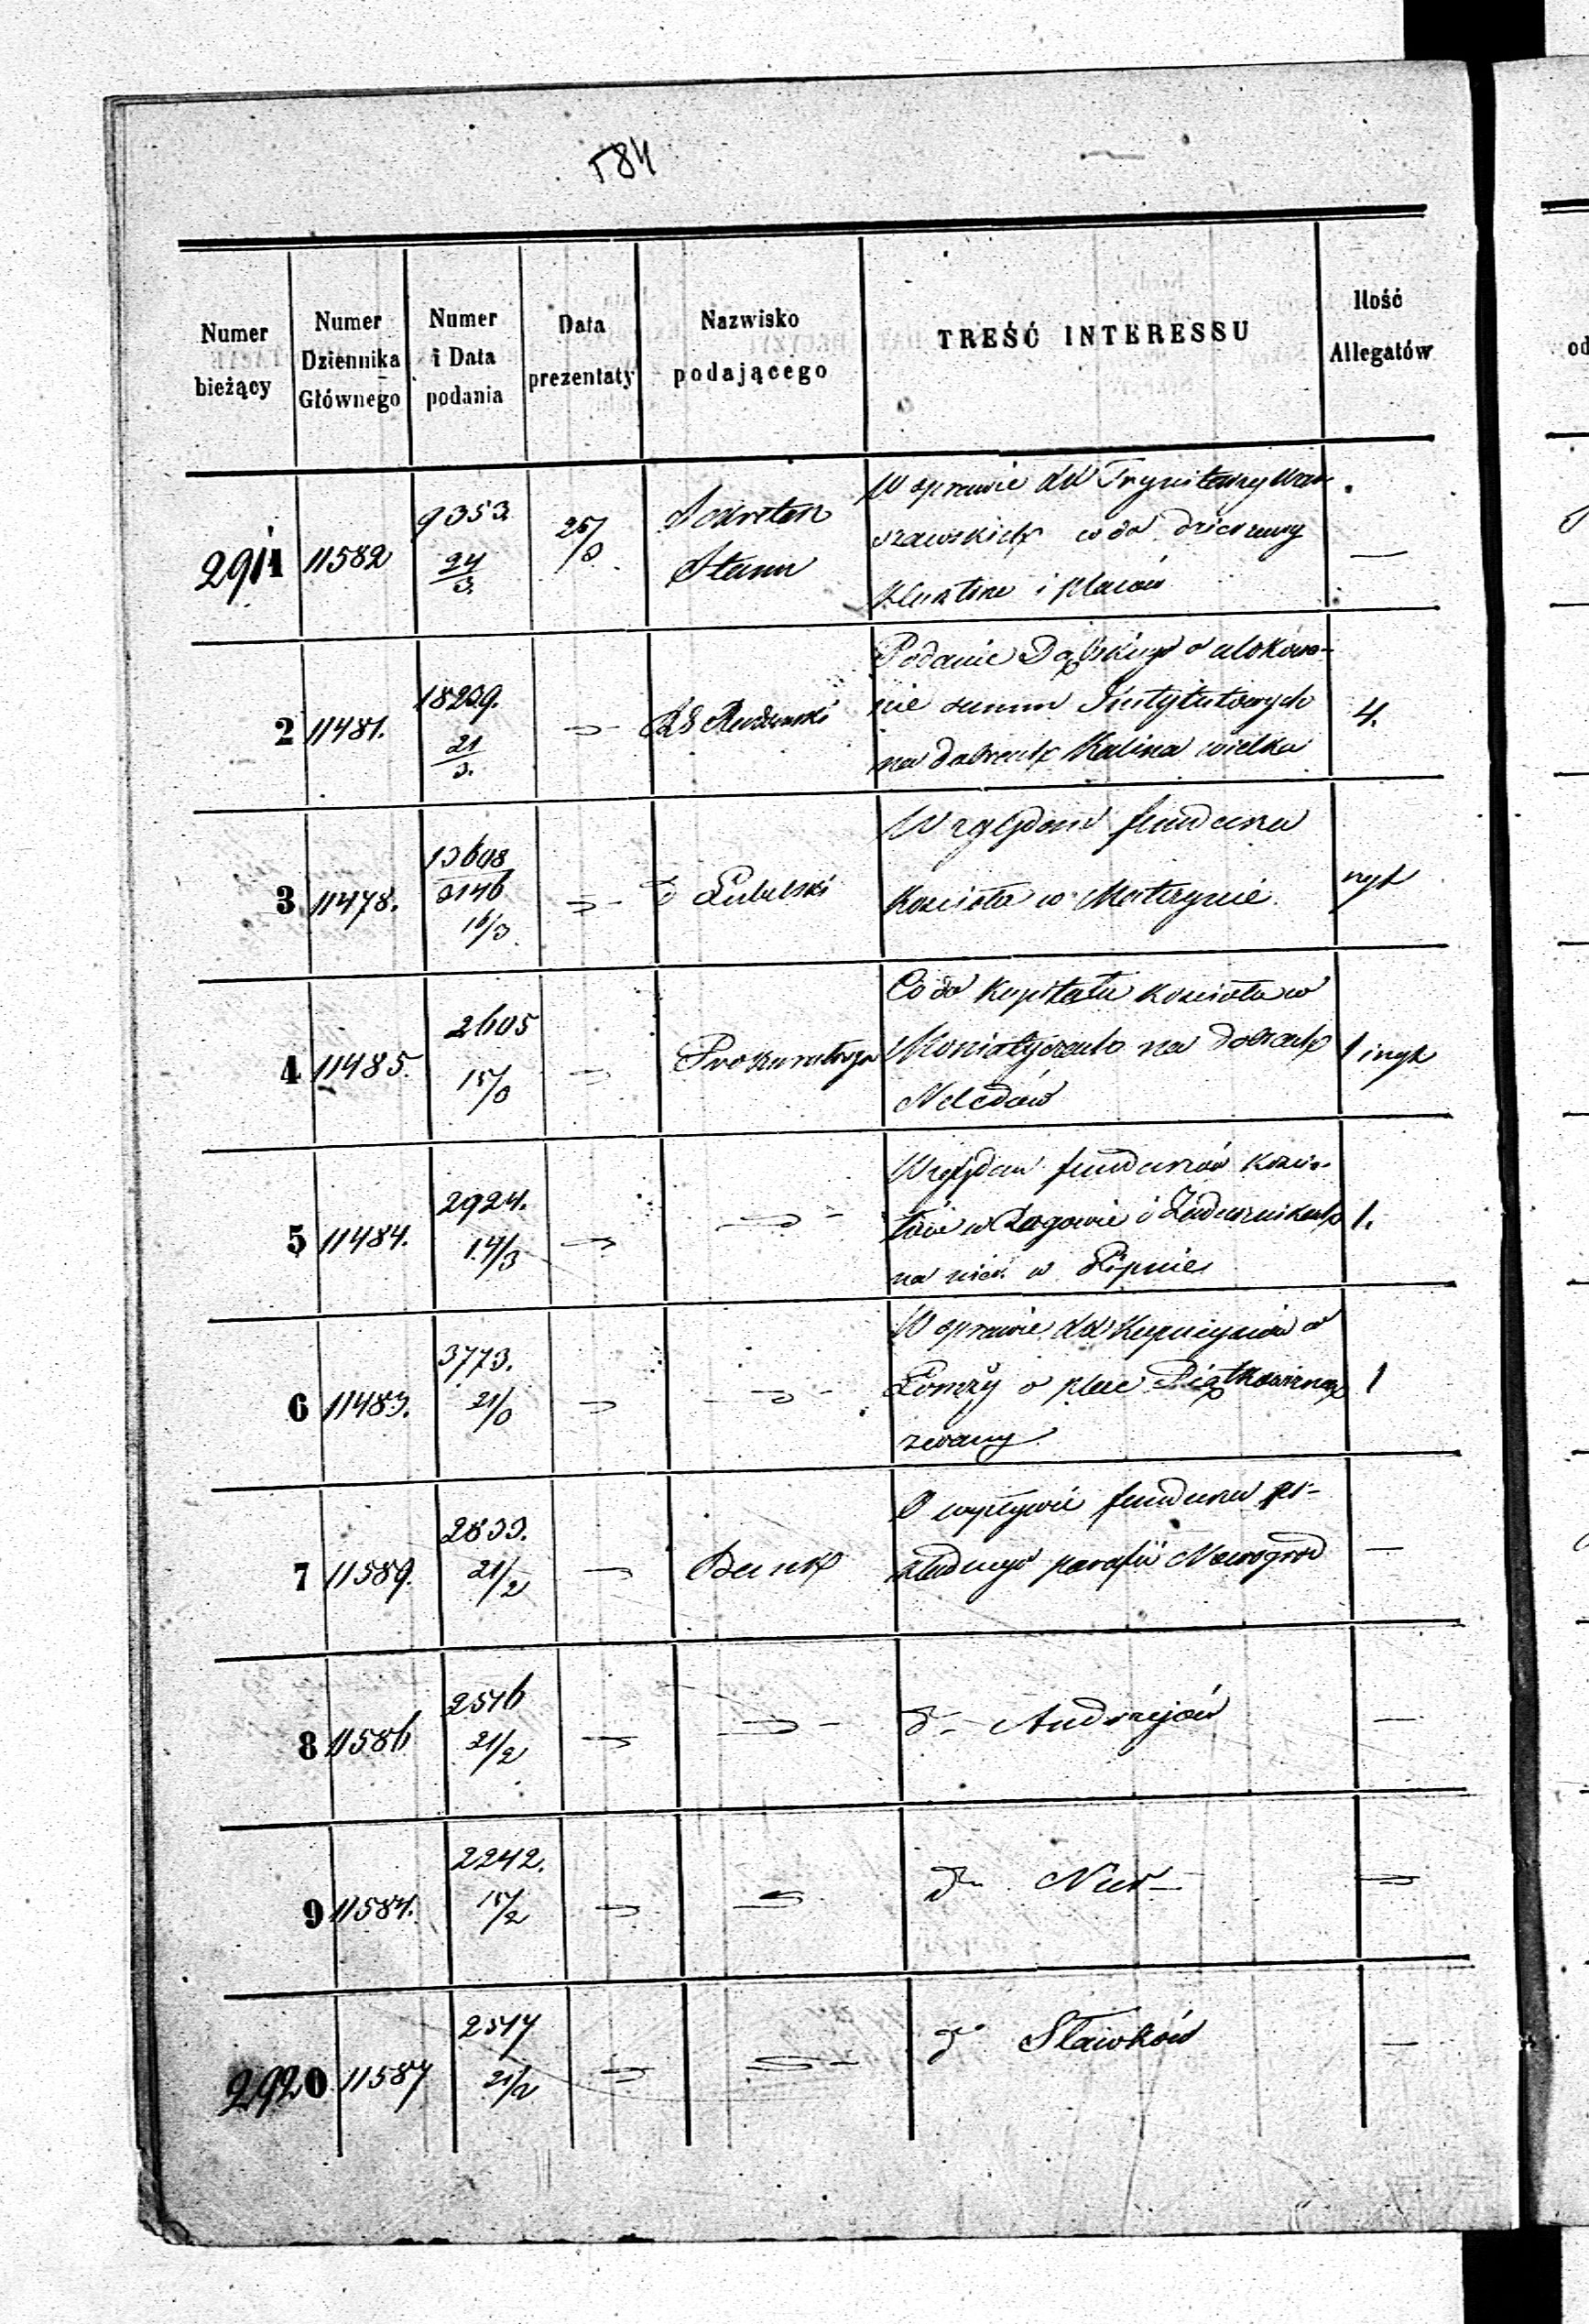 584
Numer bieżący
Numer Dziennika Głównego
Numer i Data podania
Data prezentaty
Nazwisko podającego
TREŚĆ INTERESSU
Ilość Allegatów
2911 11582 9353 24/3 25/3 Sekretarz Stanu
W sprawie XX Trynitarzy War-
szawskich co do dzierżawy
klasztoru i placów
—
2 11481. 18239. 21/3. Rudzinski
Podanie Dąbskiego o ulokowa-
nie summ Instytutowych
na dobrach Kalina wielka
4.
3 11478. 13608/3146 16/3 Lubelski
Względem funduszu
Kościoła w Matczynie
4 11485. 2605 15/3 Prokuratorya
Co do kapitału kościoła w
Moniatyczach na dobrach
Neledów
1
5 11484. 2924. 14/3
Względem funduszów kościo-
łów w Rogowie i
na nier. w Lipnie
1.
6 11483. 3773. 21/3
W sprawie XX Kapucynów w
Łomży o plac
zwany
1
7 11589. 2833. 21/2 Bank
O wpływie funduszu po-
kładnego parafii Nowogrod
—
8 11586 2516 21/2
do Andrzejów
—
9 11584. 2242. 15/2
do Nur
2920 11587 2517 21/2
do Sławków
—